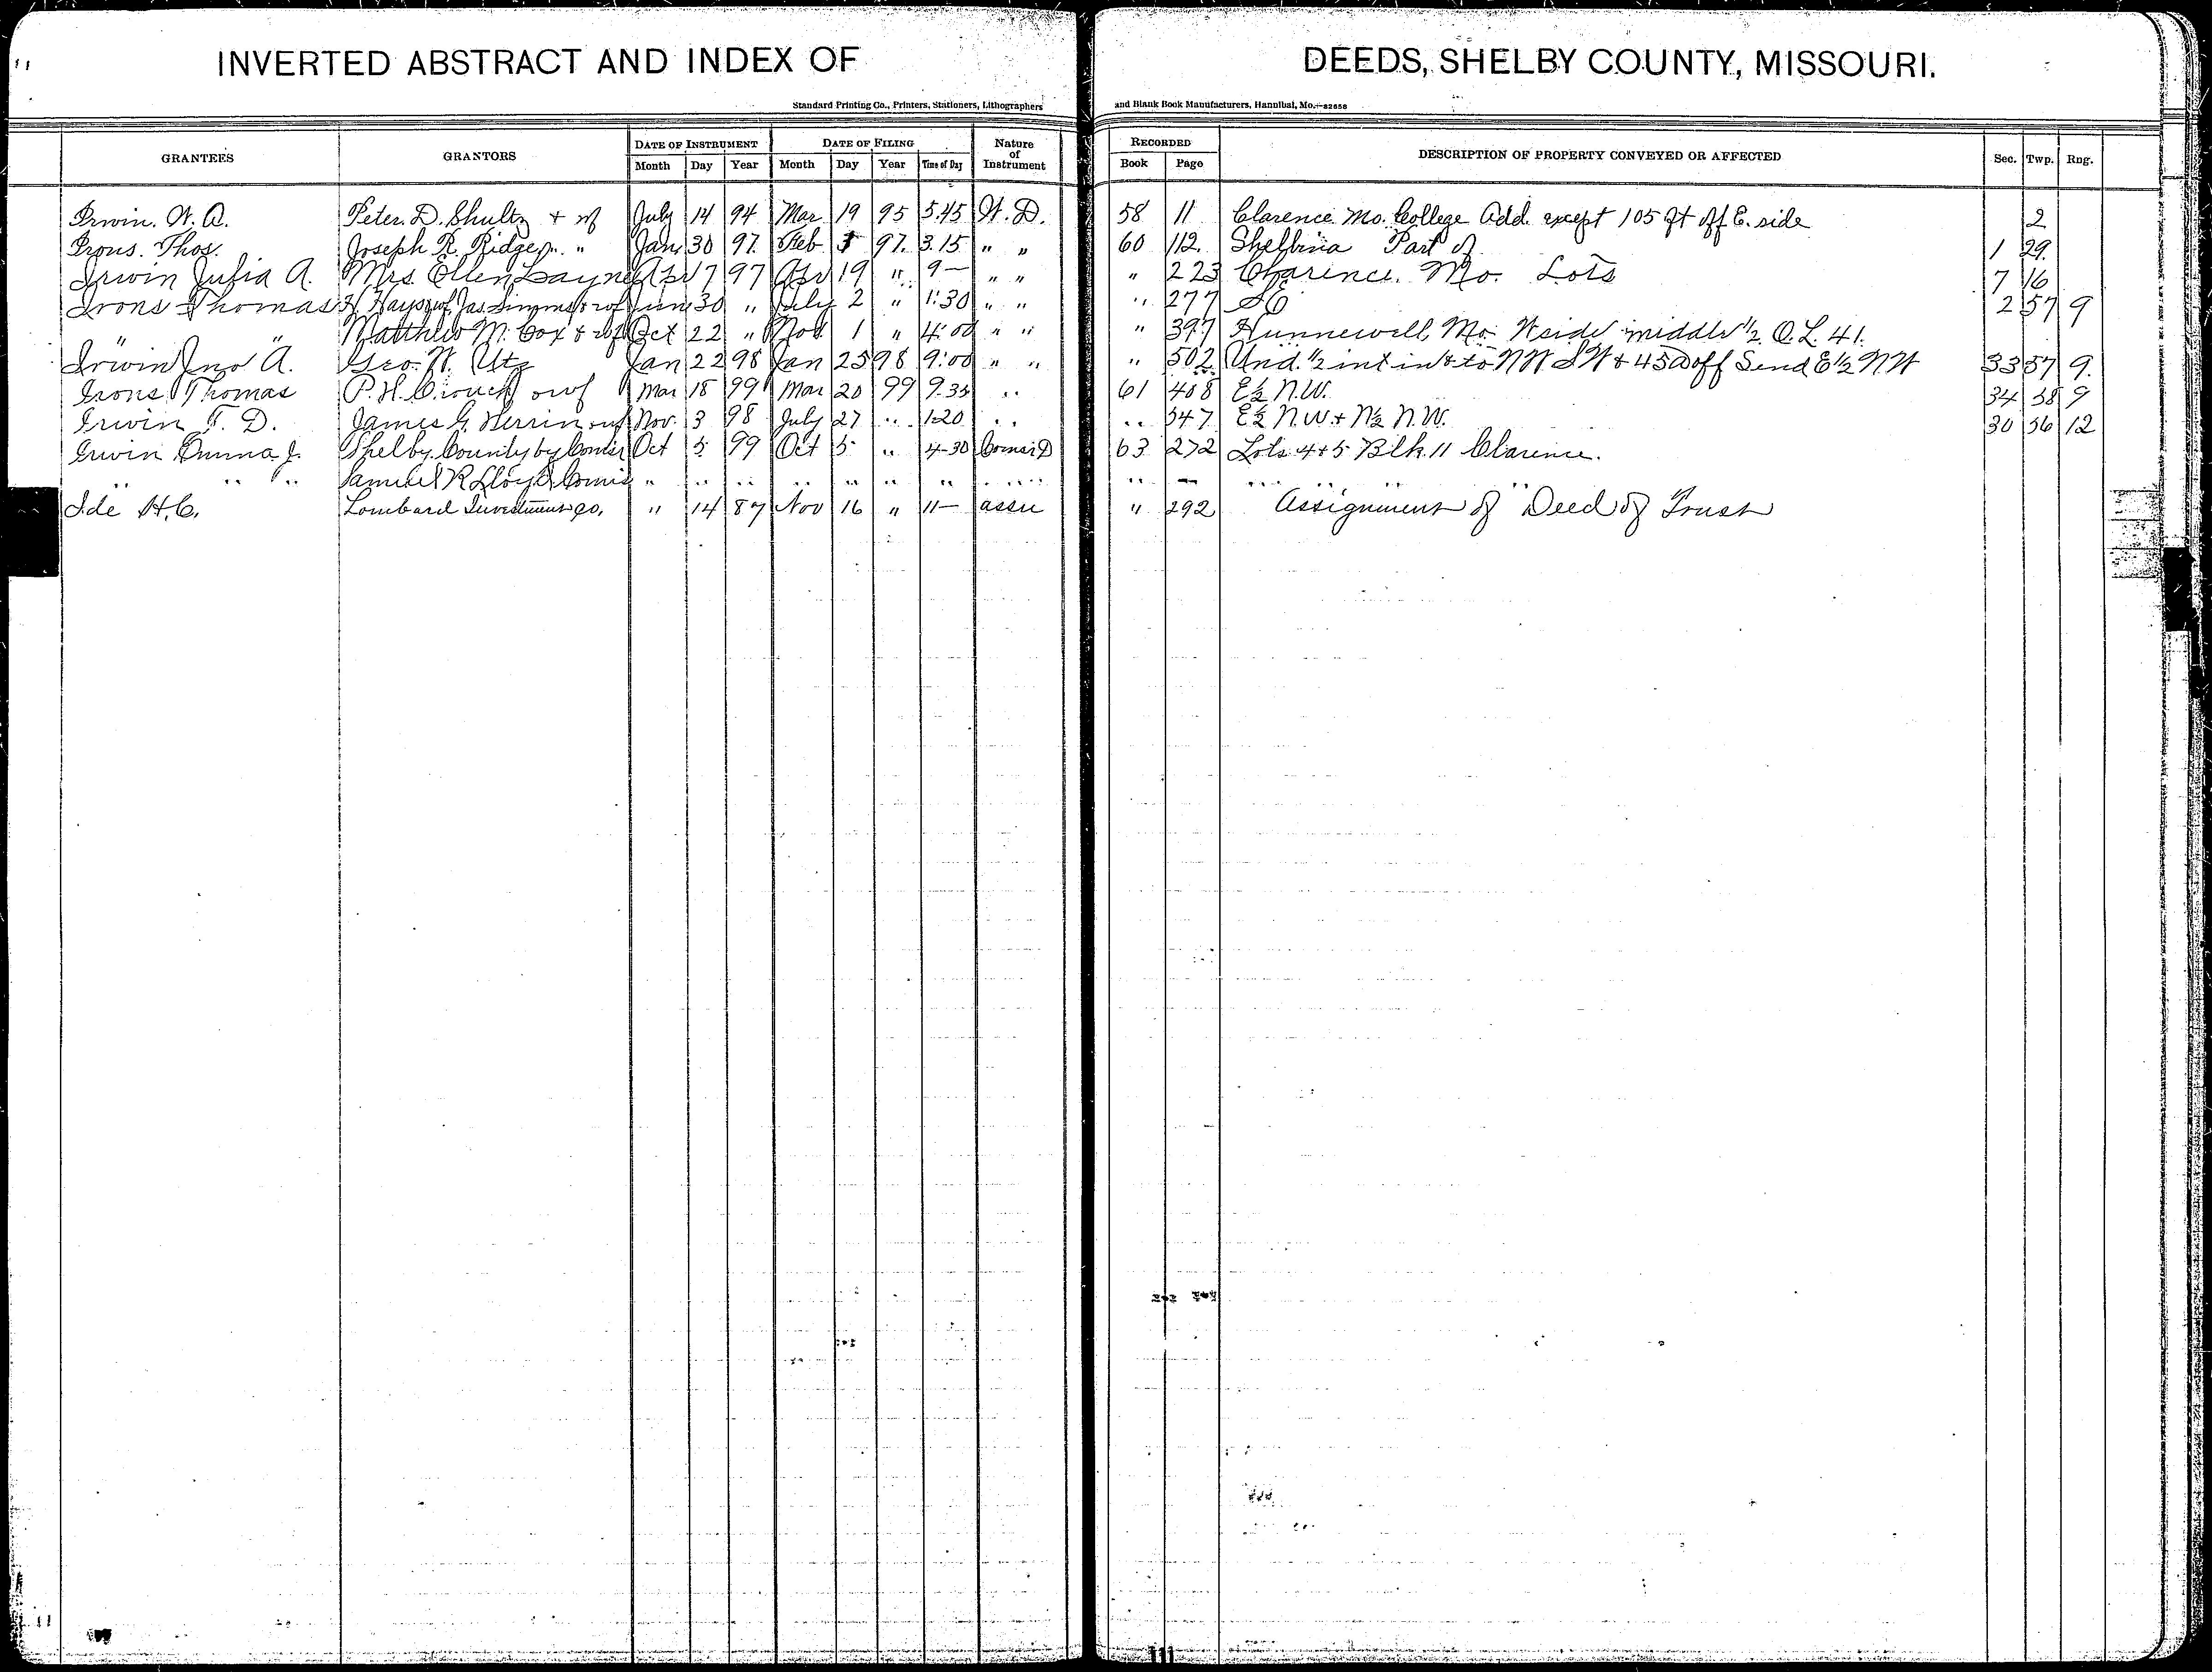 INVERTED ABSTRACT AND INDEX OF DEEDS, SHELBY COUNTY, MISSOURI.
Standard Printing Co., Printers, Stationers, Lithographers and Blank Book Manufacturers, Hannibal, Mo.—82658
GRANTEES GRANTORS DATE OF INSTRUMENT DATE OF FILING Nature of Instrument RECORDED DESCRIPTION OF PROPERTY CONVEYED OR AFFECTED Sec. Twp. Rng.
Month Day Year Month Day Year Time of Day Book Page
Irwin. W. A. Peter. D. Shultz + wf July 14 94 Mar 19 95 5.45 W. D. 58 11 Clarence Mo. College Add. except 105 ft off E. side 2
Irons. Thos. Joseph R. Ridge " Jan 30 97. Feb 97. 3.15 " " 60 112. Shelbina Part of 1 29.
Irwin Julia A. Mrs. Ellen Layne Apr 7 97 Apr 19 " 9— " " " 223 Clarence. Mo. Lots 7 16
Irons Thomas Jas. + wf June 30 " July 2 " 1:30 " " " 277 SE 2 57 9
" " Matthew M. Cox & wf Oct 22 " Nov 1 " 4:00 " " " 397 Hunnewell, Mo. W side middle ½ O. L. 41.
Irwin Jno A. Geo. W. Utz Jan 22 98 Jan 25 98 9:00 " " " 502 Und. ½ int in & to NW SW & 45 a off S end E ½ NW 33 57 9.
Irons Thomas P. H. Crouch & wf Mar 18 99 Mar 20 99 9.35 " 61 408 E½ N.W. 34 58 9
Irwin T. D. James G. Herrin & wf Nov. 3 98 July 27 " 1-20 " " 547 E½ N.W. + N½ N.W. 30 56 12
Irwin Emma J. Shelby County by Oct 5 99 Oct 5 " 4-30 63 272 Lots 4+5 Blk. 11 Clarence.
" " " Samuel R Lloyd " " " " " " " " " — " " "
Ide H. C. Lombard Investment Co. " 14 87 Nov 16 " 11— assn " 292 Assignment of Deed of Trust
111